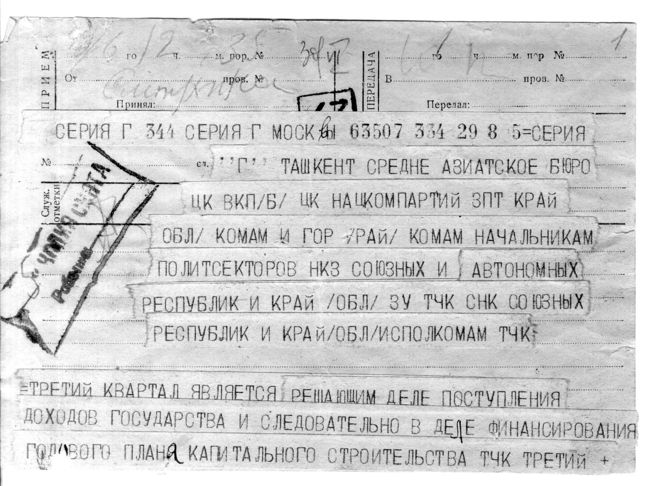 1
го ч. м. пор. № го ч. м. п•р №
ПРИЕМ
От проб. №
ПЕРЕДАЧА
В проб. №
Принял: Передал:
СЕРИЯ Г 344 СЕРИЯ Г МОСКВЫ 63507 334 29 8 5=СЕРИЯ
№ сл. ''Г'' ТАШКЕНТ СРЕДНЕ АЗИАТСКОЕ БЮРО
Служ. отметки
ЦК ВКП/Б/ ЦК НАЦКОМПАРТИЙ ЗПТ КРАЙ
ОБЛ/ КОМАМ И ГОР /РАЙ/ КОМАМ НАЧАЛЬНИКАМ
ПОЛИТСЕКТОРОВ НКЗ СОЮЗНЫХ И АВТОНОМНЫХ
РЕСПУБЛИК И КРАЙ /ОБЛ/ ЗУ ТЧК СНК СОЮЗНЫХ
РЕСПУБЛИК И КРАЙ/ОБЛ/ИСПОЛКОМАМ ТЧК=
=ТРЕТИЙ КВАРТАЛ ЯВЛЯЕТСЯ РЕШАЮЩИМ ДЕЛЕ ПОСТУПЛЕНИЯ
ДОХОДОВ ГОСУДАРСТВА И СЛЕДОВАТЕЛЬНО В ДЕЛЕ ФИНАНСИРОВАНИЯ
ГОДОВОГО ПЛАНА КАПИТАЛЬНОГО СТРОИТЕЛЬСТВА ТЧК ТРЕТИЙ +